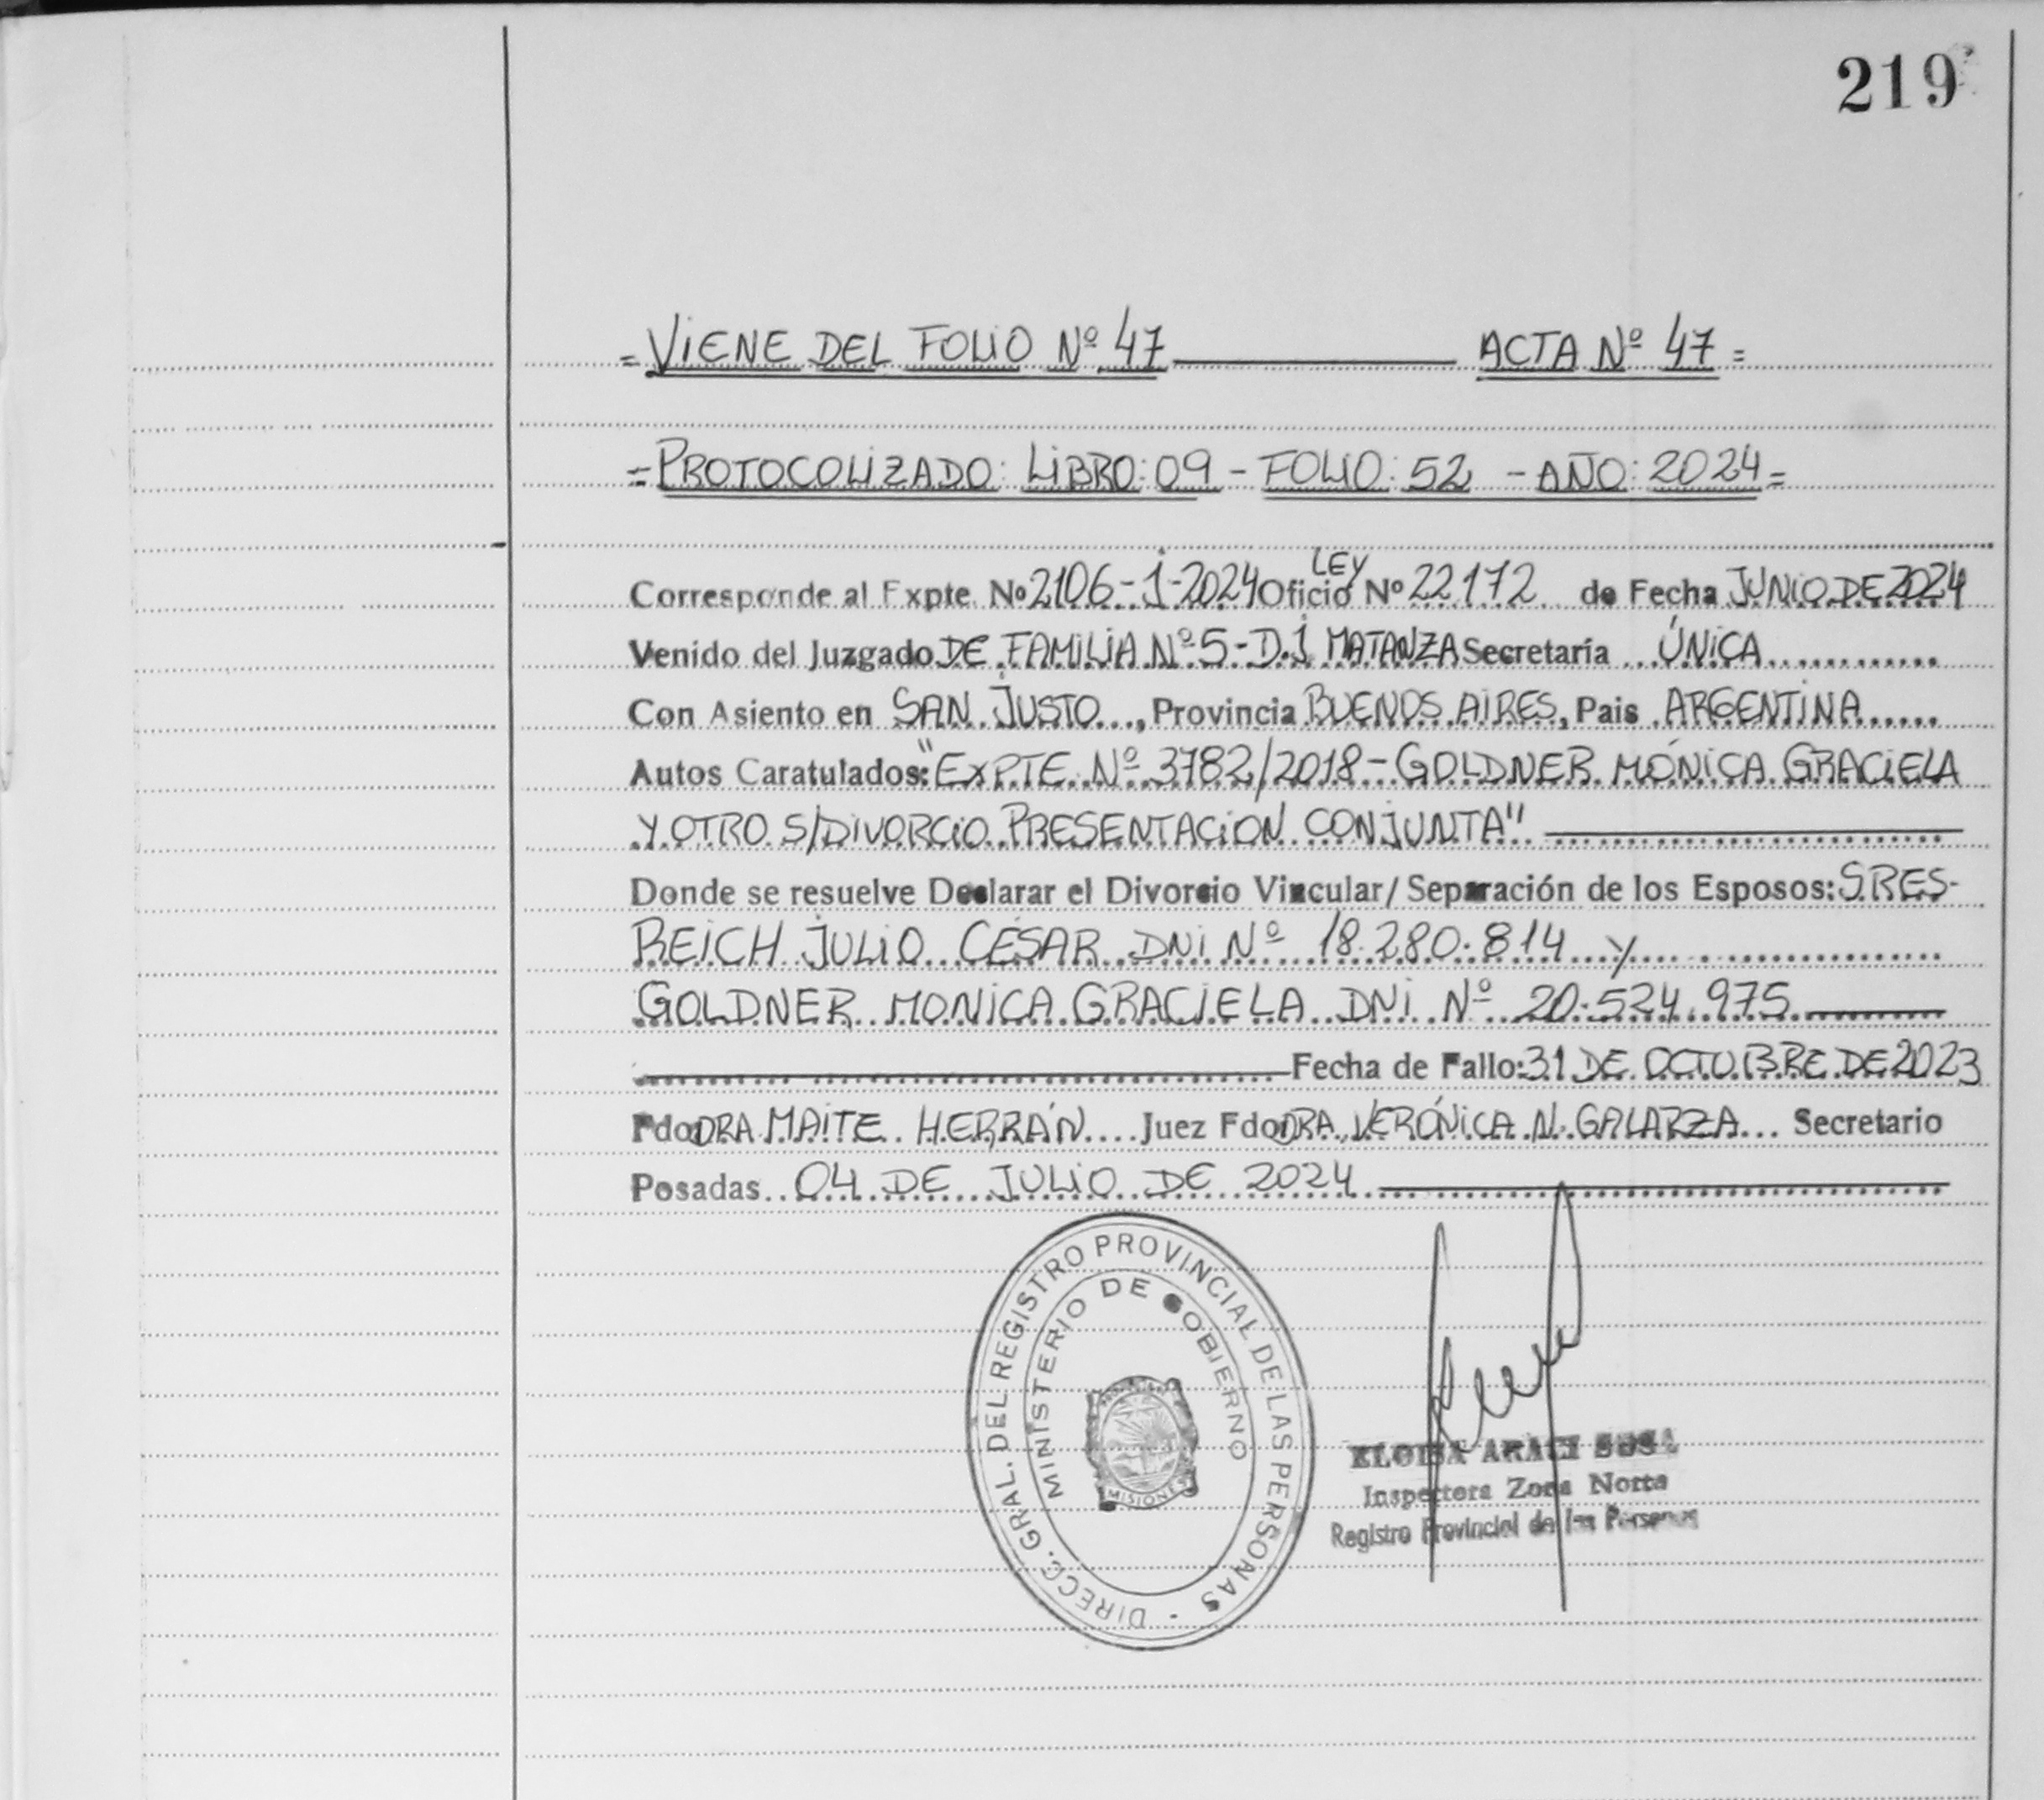 219
= VIENE DEL FOLIO Nº 47 ACTA Nº 47 =
= PROTOCOLIZADO: LIBRO: 09 - FOLIO: 52 - AÑO: 2024 =
LEY
Corresponde al Expte. Nº 2106-1-2024 Oficio Nº 22172 de Fecha JUNIO DE 2024
Venido del Juzgado DE FAMILIA Nº 5 - D.J MATANZA Secretaría ÚNICA
Con Asiento en SAN JUSTO, Provincia BUENOS AIRES, Pais ARGENTINA
Autos Caratulados: "EXPTE Nº 3782/2018 - GOLDNER MÓNICA GRACIELA
Y OTRO S/DIVORCIO PRESENTACIÓN CONJUNTA"
Donde se resuelve Declarar el Divorcio Vincular/ Separación de los Esposos: SRES-
REICH JULIO CÉSAR DNI Nº 18.280.814 y
GOLDNER MONICA GRACIELA DNI Nº 20.524.975
Fecha de Fallo: 31 DE OCTUBRE DE 2023
Fdo DRA MAITE HERRÁN Juez Fdo DRA VERÓNICA N. GALARZA Secretario
Posadas 04 DE JULIO DE 2024
DIRECC. GRAL. DEL REGISTRO PROVINCIAL DE LAS PERSONAS -
MINISTERIO DE GOBIERNO
MISIONES
ELOISA ARACI SOSA
Inspectora Zona Norte
Registro Provincial de las Personas